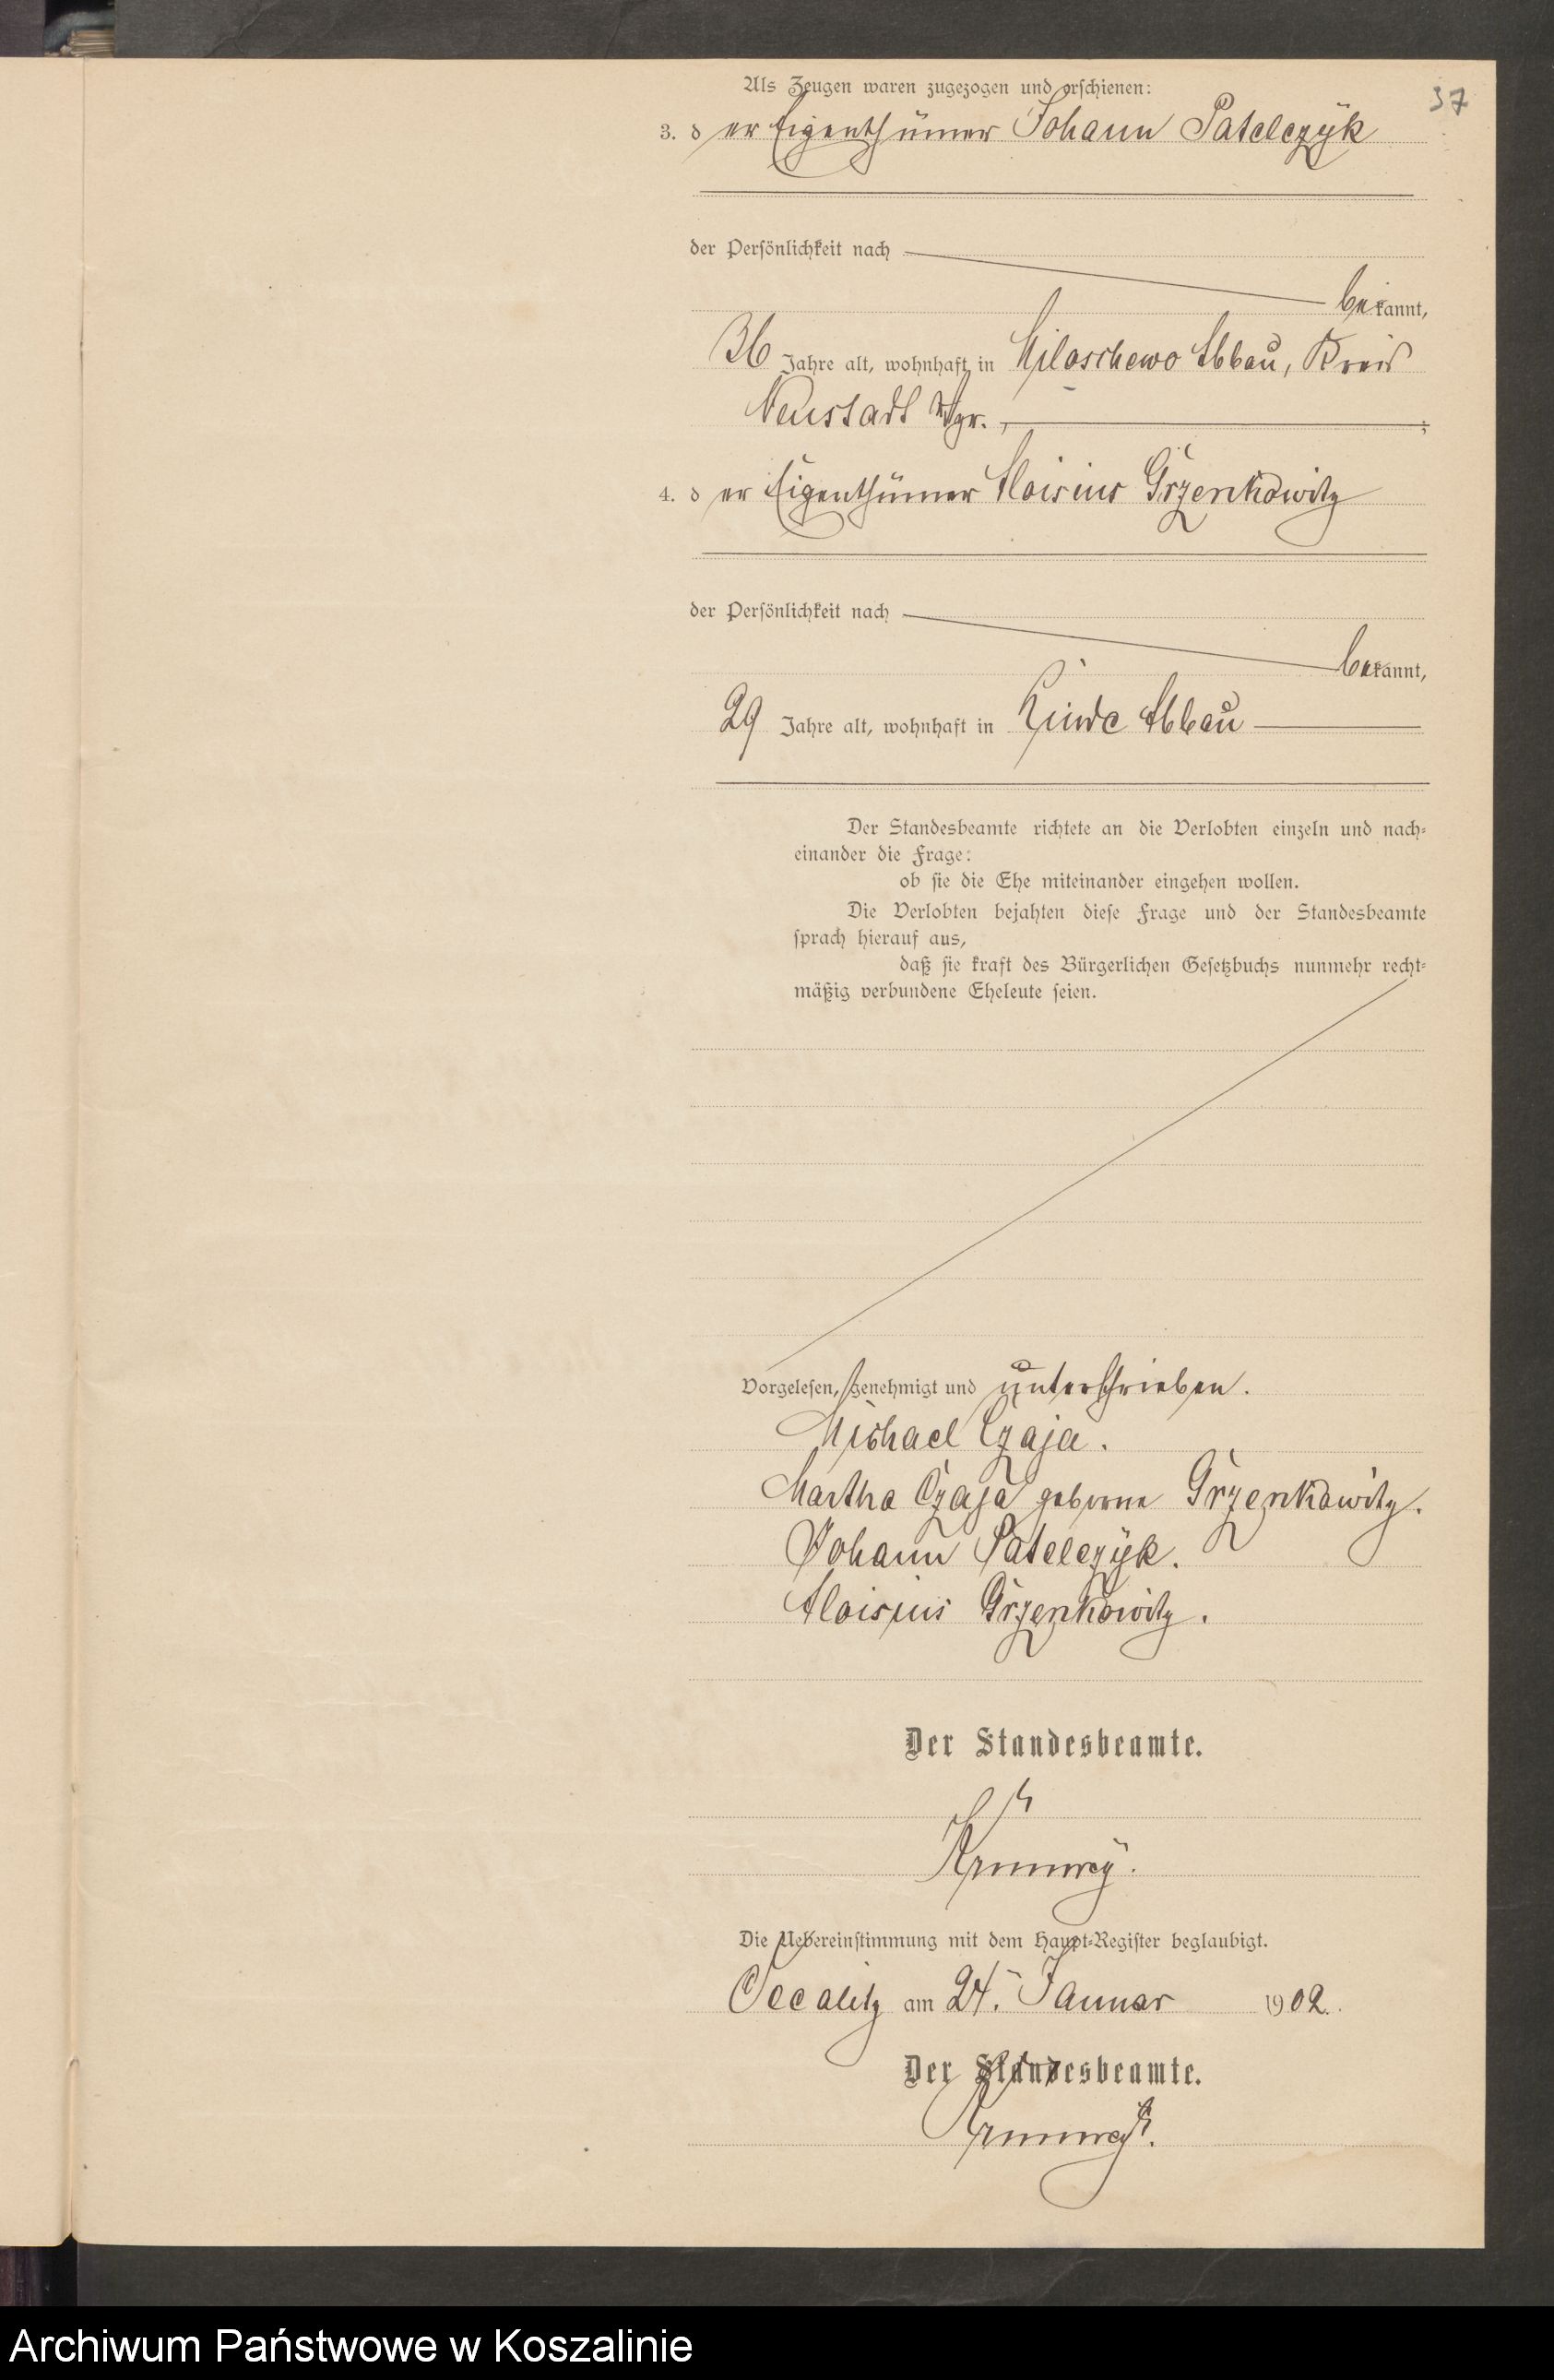 37
Als Zeugen waren zugezogen und erschienen:
3. der Eigenthümer Johann Patelczyk
der Persönlichkeit nach
bekannt,
36 Jahre alt, wohnhaft in Miloschewo Abbau, Kreis
Neustadt Wpr.,
;
4. der Eigenthümer Aloisius Grzenkowitz
der Persönlichkeit nach
bekannt,
29 Jahre alt, wohnhaft in Linde Abbau
Der Standesbeamte richtete an die Verlobten einzeln und nach-
einander die Frage:
ob sie die Ehe miteinander eingehen wollen.
Die Verlobten bejahten diese Frage und der Standesbeamte
sprach hierauf aus,
daß sie kraft des Bürgerlichen Gesetzbuchs nunmehr recht-
mäßig verbundene Eheleute seien.
Vorgelesen, genehmigt und unterschrieben.
Michael Czaja.
Martha Czaja geborne Grzenkowitz.
Johann Patelczyk.
Aloisius Grzenkowitz.
Der Standesbeamte.
Die Uebereinstimmung mit dem Haupt-Register beglaubigt.
Occalitz am 24. Januar 1902.
Der Standesbeamte.
Archiwum Państwowe w Koszalinie